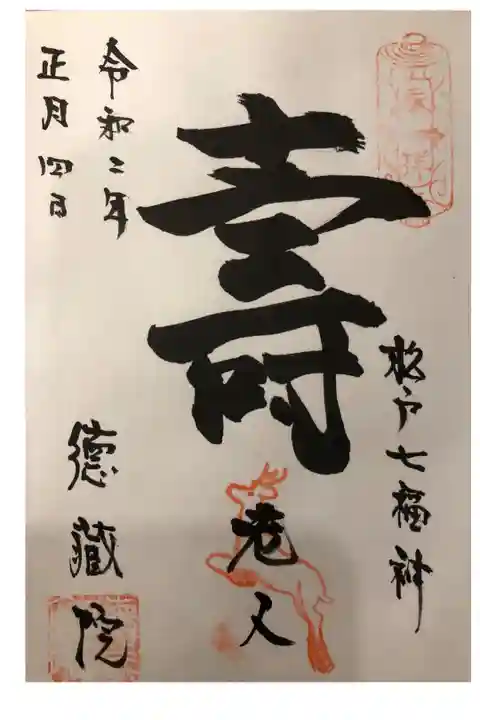 松戸七福神
壽
老人
令和二年
正月四日
德藏院